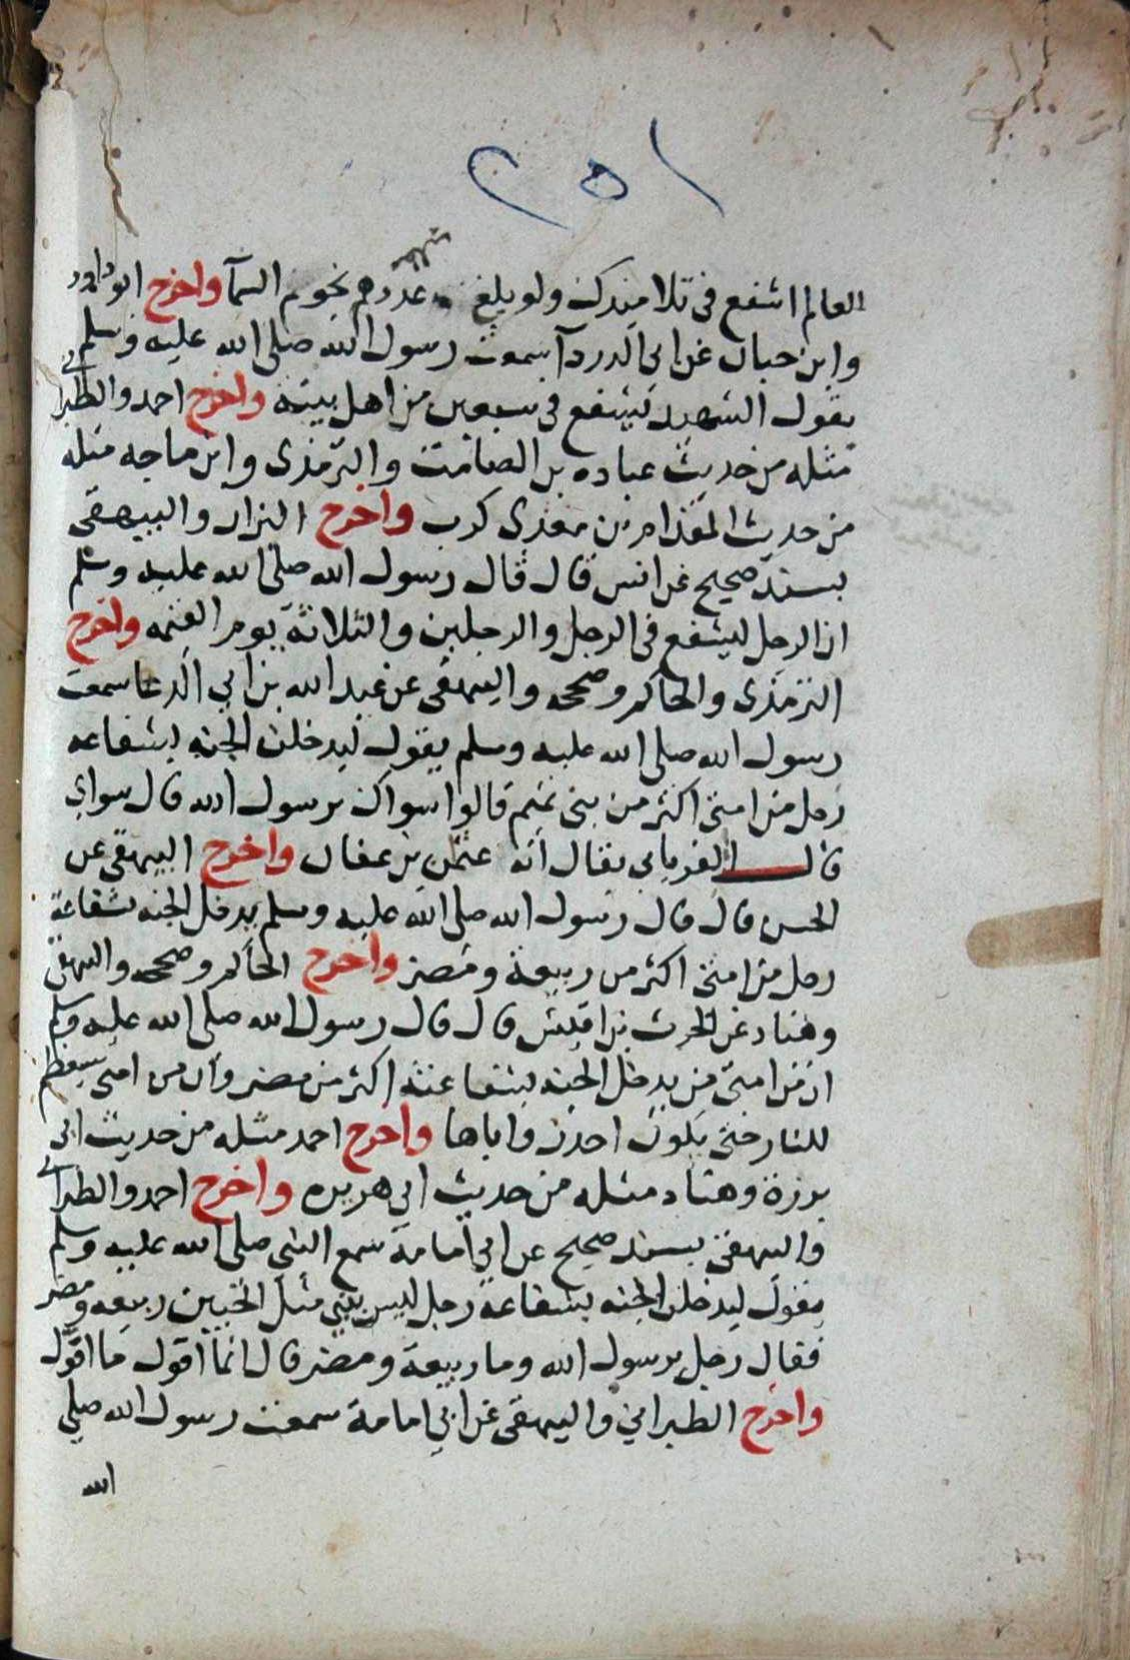 ٢٥١
العالم اشفع فى تلاميذك ولو بلغ عددهم نجوم السمآ واخرج ابو داود
وابن حبان عن ابى الدردآ سمعت رسول الله صلى الله عليه وسلم
يقول الشهيد يشفع فى سبعين من اهل بيته واخرج احمد والطبرانى
مثله من حديث عباده بن الصامت والترمذى وابن ماجه مثله
من حديث المقدام بن معدى كرب واخرج البزار والبيهقى
بسند صحيح عن انس قال قال رسول الله صلى الله عليه وسلم
ان الرجل ليشفع فى الرجل والرجلين والثلاثة يوم القيمه واخرج
الترمذى والحاكم وصححه والبيهقى عن عبد الله بن ابي الجدعا سمعت
رسول الله صلى الله عليه وسلم يقول ليدخلن الجنه بشفاعه
رجل من امتى اكثر من بنى تميم قالوا سواك يرسول الله قال سواي
قال الفريابى يقال انه عثمن بن عفان واخرج البيهقى عن
الحسن قال قال رسول الله صلى الله عليه وسلم يدخل الجنه بشفاعة
رجل من امتى اكثر من ربيعة ومضر واخرج الحاكم وصححه والبيهقى
وهناد عن الحرث بن اقيش قال قال رسول الله صلى الله عليه وسلم
ان من امتى من يدخل الجنه بشفاعته اكثر من مضر وان من امتى سيعظم
للنار حتى يكون احدز واياها واخرج احمد مثله من حديث ابى
برزة وهناد مثله من حديث ابى هريره واخرج احمد والطبرانى
والبيهقى بسند صحيح عن ابي امامة سمع النبى صلى الله عليه وسلم
يقول ليدخلن الجنه بشفاعة رجل ليس بنبي مثل الحيين ربيعه ومضر
فقال رجل يرسول الله وما ربيعة ومضر قال انما اقول ما اقول
واخرج الطبراني والبيهقى عن ابي امامة سمعت رسول الله صلى
الله